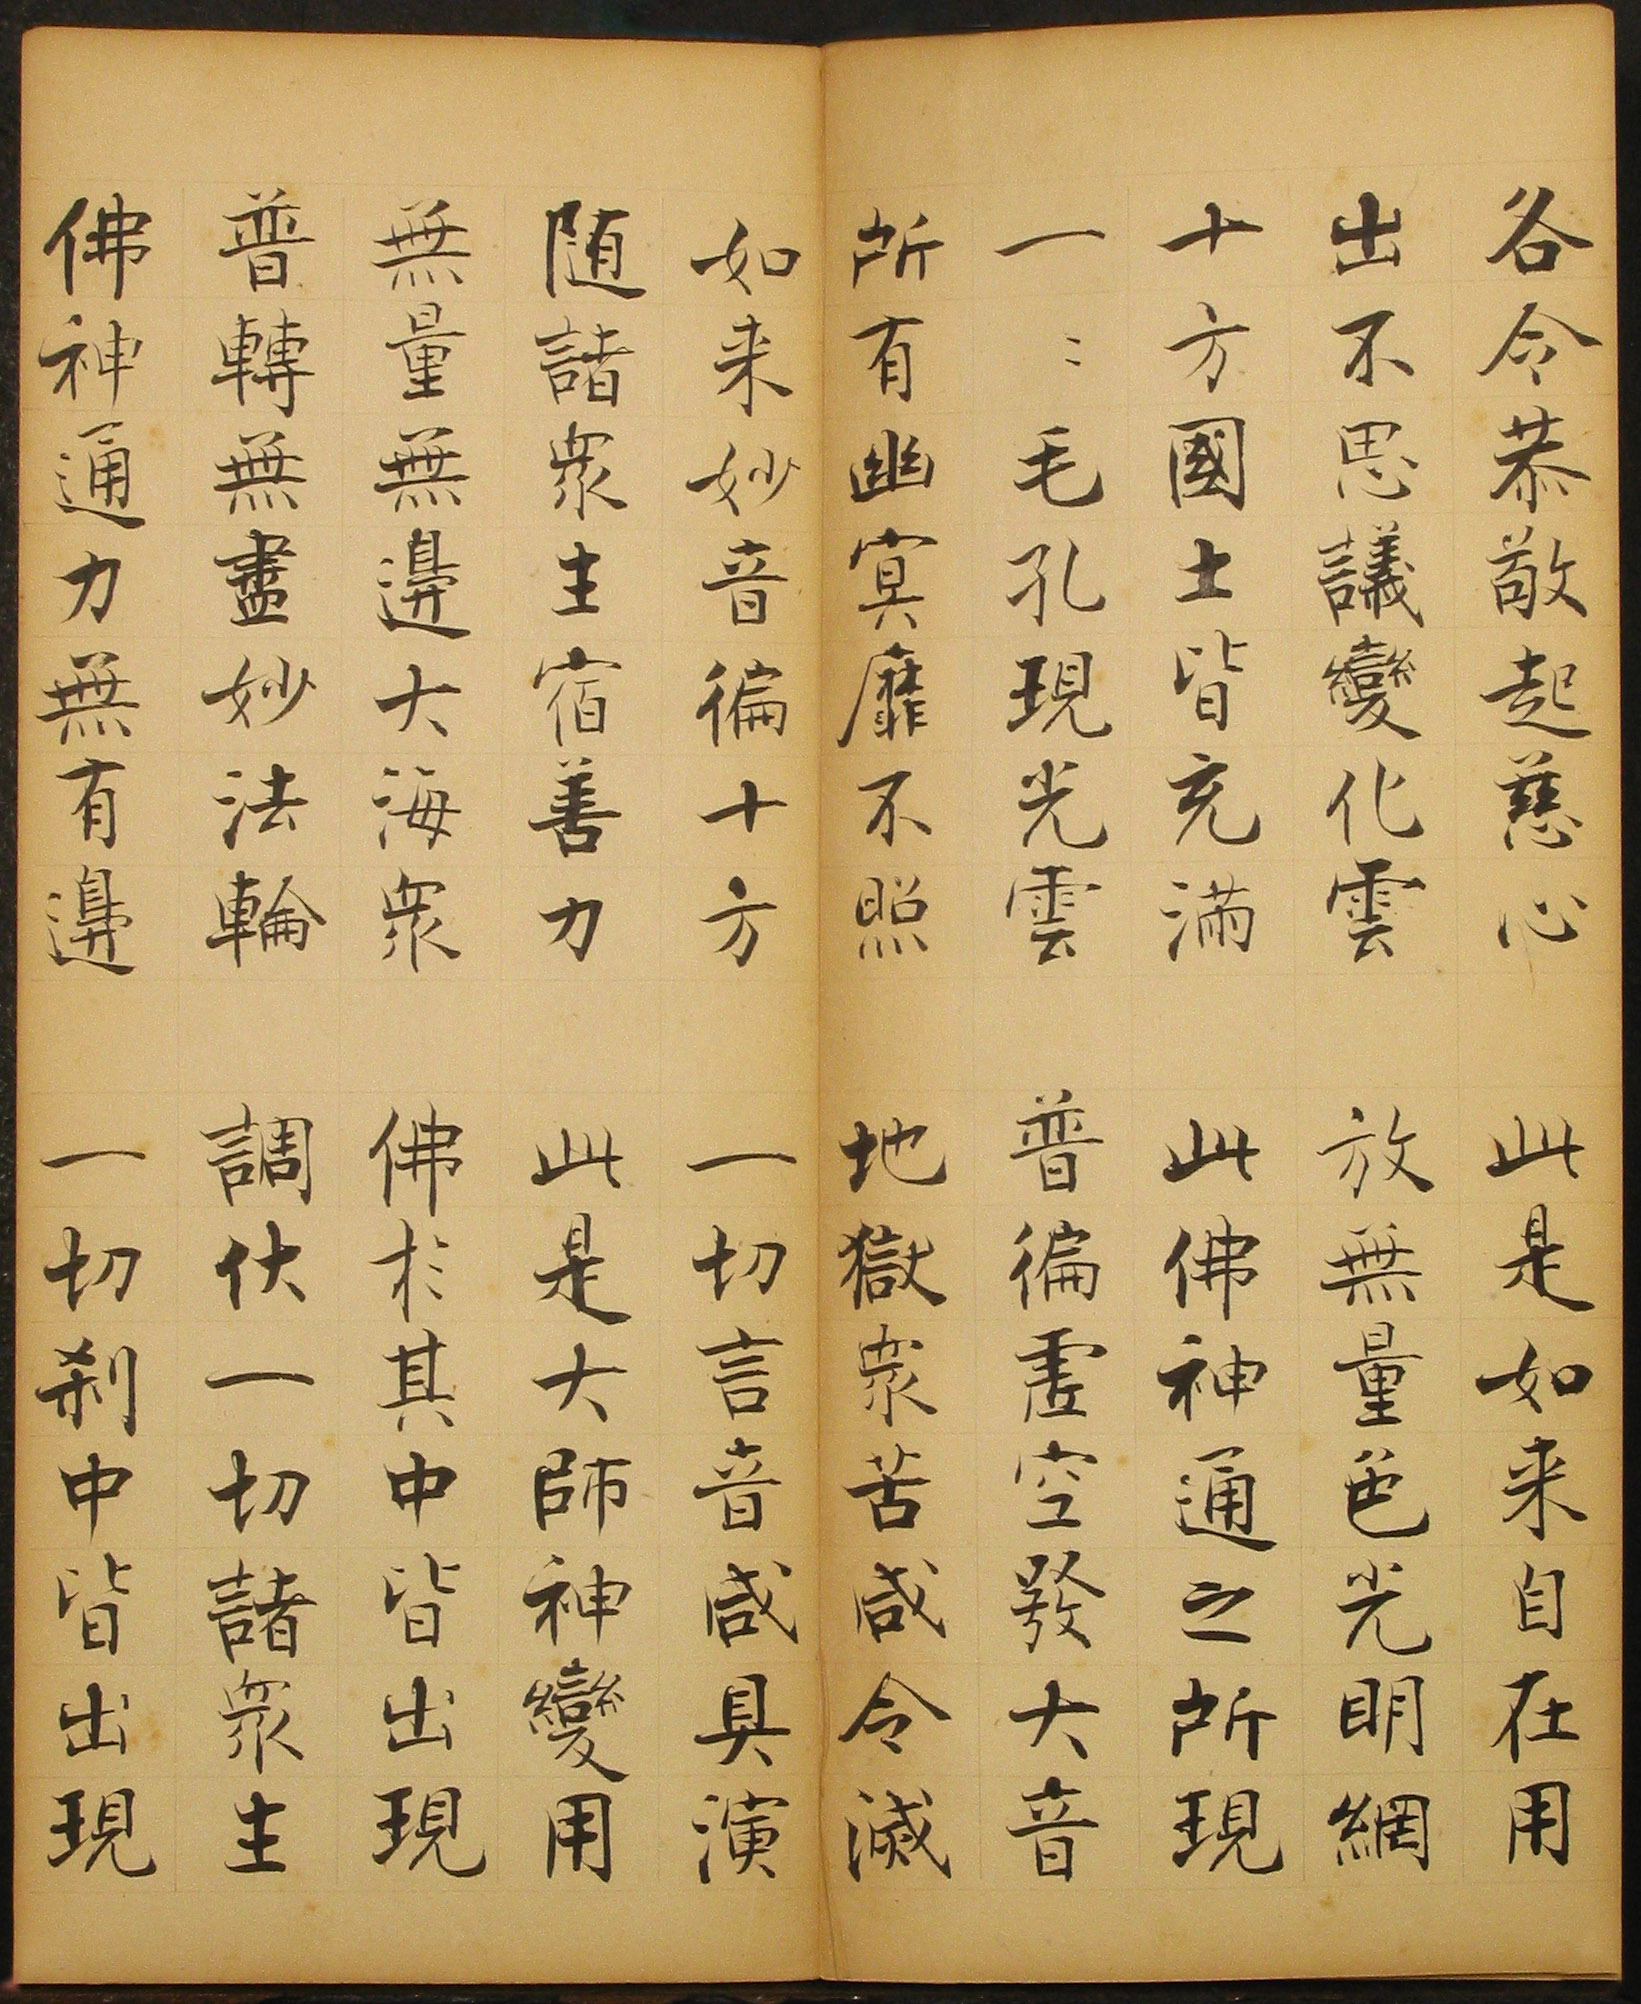 各令恭敬起慈心　此是如来自在用
出不思議變化雲　放無量色光明網
十方國土皆充滿　此佛神通之所現
一〻毛孔現光雲　普徧虛空發大音
所有幽冥靡不照　地獄衆苦咸令滅
如来妙音徧十方　一切言音咸具演
随諸衆生宿善力　此是大師神變用
無量無邊大海衆　佛於其中皆出現
普轉無盡妙法輪　調伏一切諸衆生
佛神通力無有邊　一切刹中皆出現